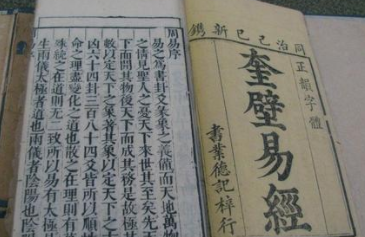 同治己巳新鐫
正韻字體
奎壁易經
書業德記梓行
周易序
易之爲書卦爻彖象之義備而天地萬物
之情見聖人之憂天下來世其至矣先天
下而開其物後天下而成其務是故極其
數以定天下之象著其象以定天下之吉
凶六十四卦三百八十四爻皆所以順性
命之理盡變化之道也散之在理則有萬
殊統之在道則无二致所以易有太極是
生兩儀太極者道也兩儀者陰陽也陰陽